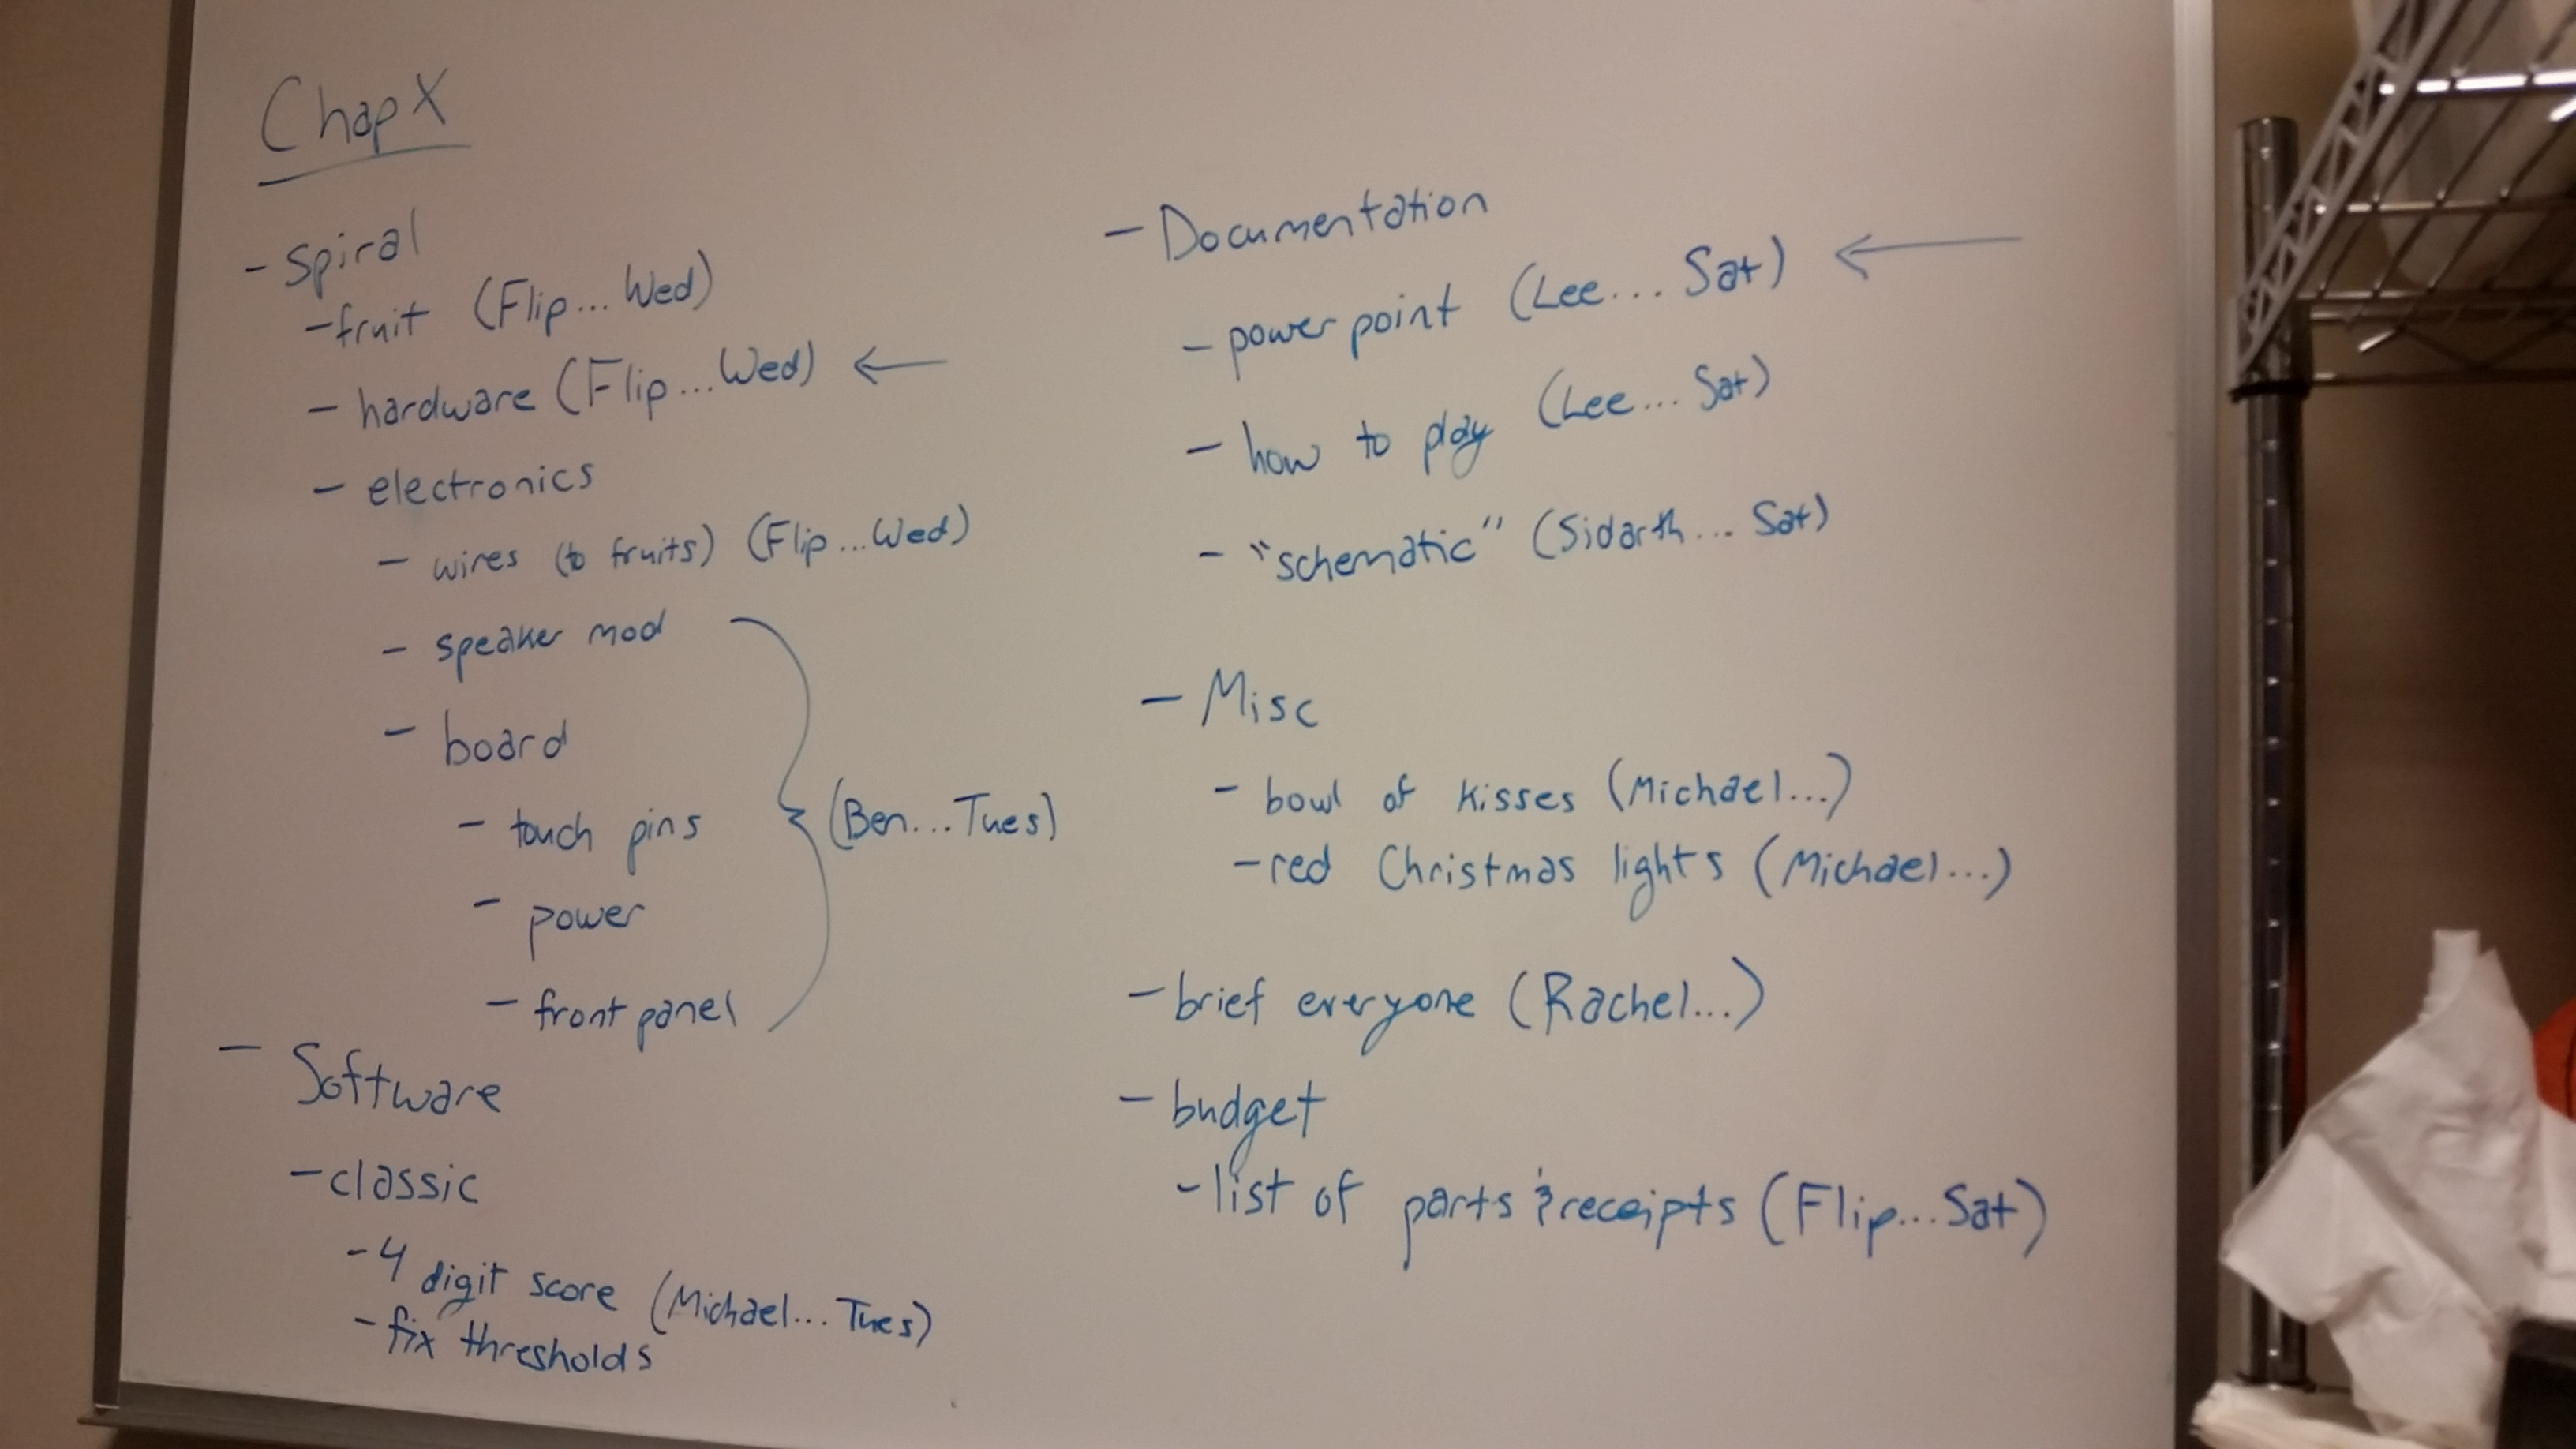 ChapX
- spiral
- fruit (Flip... Wed)
- hardware (Flip... Wed) ←
- electronics
- wires (to fruits) (Flip... Wed)
- speaker mod
- board
- touch pins
(Ben... Tues)
- power
- front panel
- Software
- classic
- 4 digit score (Michael... Tues)
- fix thresholds
- Documentation
- power point (Lee... Sat) ←
- how to play (Lee... Sat)
- "schematic" (Sidarth... Sat)
- Misc
- bowl of kisses (Michael...)
- red Christmas lights (Michael...)
- brief everyone (Rachel...)
- budget
- list of parts & receipts (Flip... Sat)